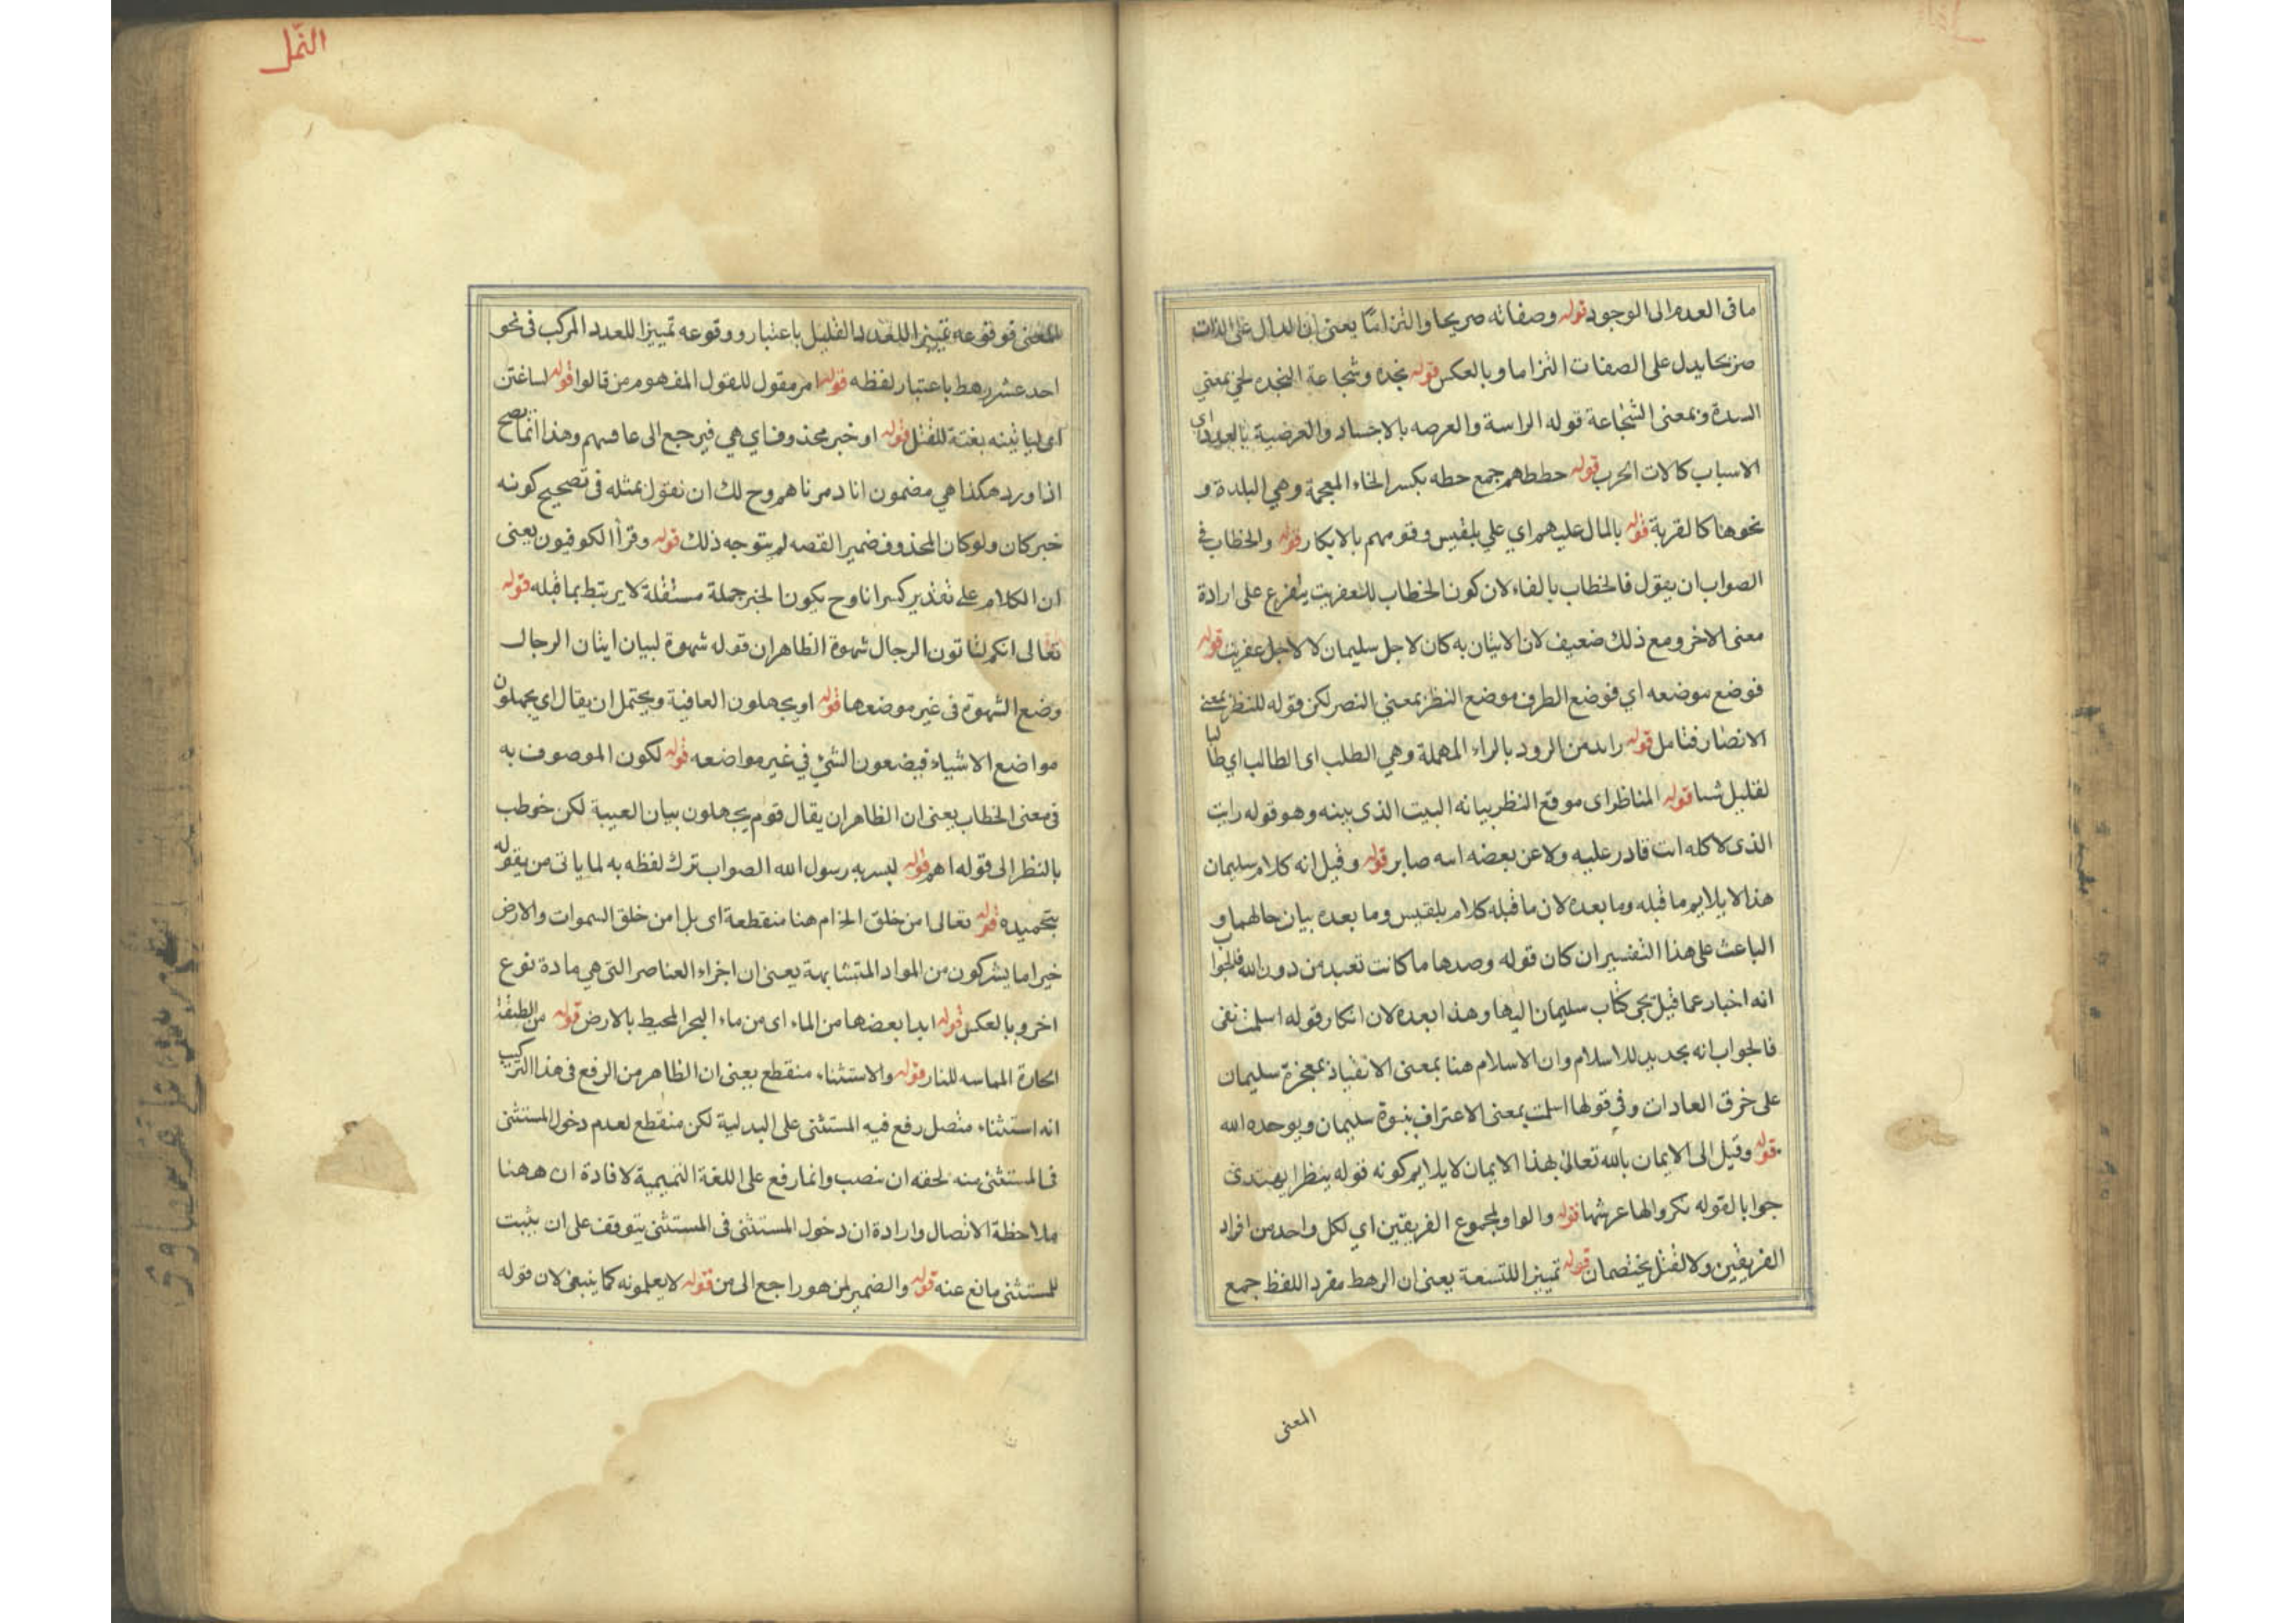 ما فى العدم الى الوجود قوله وصفاته صريحا والتزاما يعنى ان الدال على الذات
صريحا يدل على الصفات التزاما وبالعكس قوله نجدة وشجاعة النجدة لحى بمعنى
السدة وبمعنى الشجاعة قوله الراسة والعرصه بالاجساد والعرضية بالعدد اى
الاسباب كالات الحرب قوله حططهم جمع حطه بكسر الخاء المعجمة وهي البلدة و
نحوها كالقرية قوله بالمال عليهم اي على بلقيس وقومهم بالابكار قوله والخطاب فى
الصواب ان يقول فالخطاب بالفاء لان كون الخطاب للعفريت يتفرع على ارادة
معنى الاخر ومع ذلك ضعيف لان الاتيان به كان لاجل سليمان لا لاجل عفريت قوله
فوضع موضعه اي فوضع الطرف موضع النظر بمعنى النصر لكن قوله للنظر بمعنى
الانصار فتامل قوله رايد من الرود بالراء المهملة وهي الطلب اى الطالب اي طالبا
لقليل شيا قوله المناظر اى موقع النظر بيانه البيت الذى بينه وهو قوله رايت
الذى لا كله انت قادر عليه ولا عن بعضه انت صابر قوله وقيل انه كلام سليمان
هذا لا يلايم ما قبله وما بعده لان ما قبله كلام بلقيس وما بعده بيان حالهما و
الباعث على هذا التفسير ان كان قوله وصدها ما كانت تعبد من دون الله فالجواب
انه اخبار عما قبل بجى كتاب سليمان اليها وهذا بعده لان انكار قوله اسلمت نفى
فالجواب انه تجديد للاسلام وان الاسلام هنا بمعنى الانقياد بمعجزة سليمان
على خرق العادات وفي قولها اسلمت بمعنى الاعتراف بنبوة سليمان ويوحده الله
قوله وقيل الى الايمان بالله تعالى بهذا الايمان لا يلايم كونه قوله ينظر ايهتدى
جوابا لقوله نكروا لها عرشها قوله والواو لمجموع الفريقين اي لكل واحد من افراد
الفريقين ولا لقيل يختصمان قوله تمييز اللتسعة يعنى ان الرهط مفرد اللفظ جمع
المعنى
النمل
المعنى فوقوعه تمييزا للعدد القليل باعتباره ووقوعه تمييزا للعدد المركب فى نحو
احد عشر رهط باعتبار لفظه قوله امر مقول للقول المفهوم من قالوا قوله لساغتن
اى لياتينه بغتة للقتل قوله او خبر محذوف اي هي فيرجع الى عاقبهم وهذا انما يصح
اذا ورد هكذا هي مضمون انا دمرناهم وح لك ان نقول بمثله فى تصحيح كونه
خبر كان ولو كان المحذوف ضمير القصه لم يتوجه ذلك قوله وقرا الكوفيون يعنى
ان الكلام على تقدير كسر انا وح يكون الخبر جملة مستقلة لا يرتبط بما قبله قوله
تعالى انكم لتاتون الرجال شهوة الظاهر ان قوله شهوة لبيان اتيان الرجال
وضع الشهوة فى غير موضعها قوله او يجهلون العاقبة ويحتمل ان يقال اي يجهلون
مواضع الاشياء فيضعون الشئ في غير مواضعه قوله لكون الموصوف به
فى معنى الخطاب يعنى ان الظاهر ان يقال قوم يجهلون بيان الغيبة لكن خوطب
بالنظر الى قوله اهم قوله ليسر به رسول الله الصواب ترك لفظه به لما ياتى من يقوله
بتحميده قوله تعالى امن خلق الخ ام هنا منقطعة اى بل امن خلق السموات والارض
خير اما يشركون من المواد المتشابهة يعنى ان اجزاء العناصر التى هي مادة نوع
اخر وبالعكس قوله ابدا بعضها من الماء اى من ماء البحر المحيط بالارض قوله من الطبقة
الحارة المماسه للنار قوله والاستثناء منقطع يعنى ان الظاهر من الرفع فى هذا التركيب
انه استثناء متصل رفع فيه المستثنى على البدلية لكن منقطع لعدم دخول المستثنى
فى المستثنى منه لحقه ان ينصب وانما رفع على اللغة التميمية لافادة ان ههنا
ملاحظة الاتصال وارادة ان دخول المستثنى فى المستثنى يتوقف على ان يثبت
للمستثنى مانع عنه قوله والضمير لمن هو راجع الى من قوله لا يعلمونه كما ينبغى لان قوله